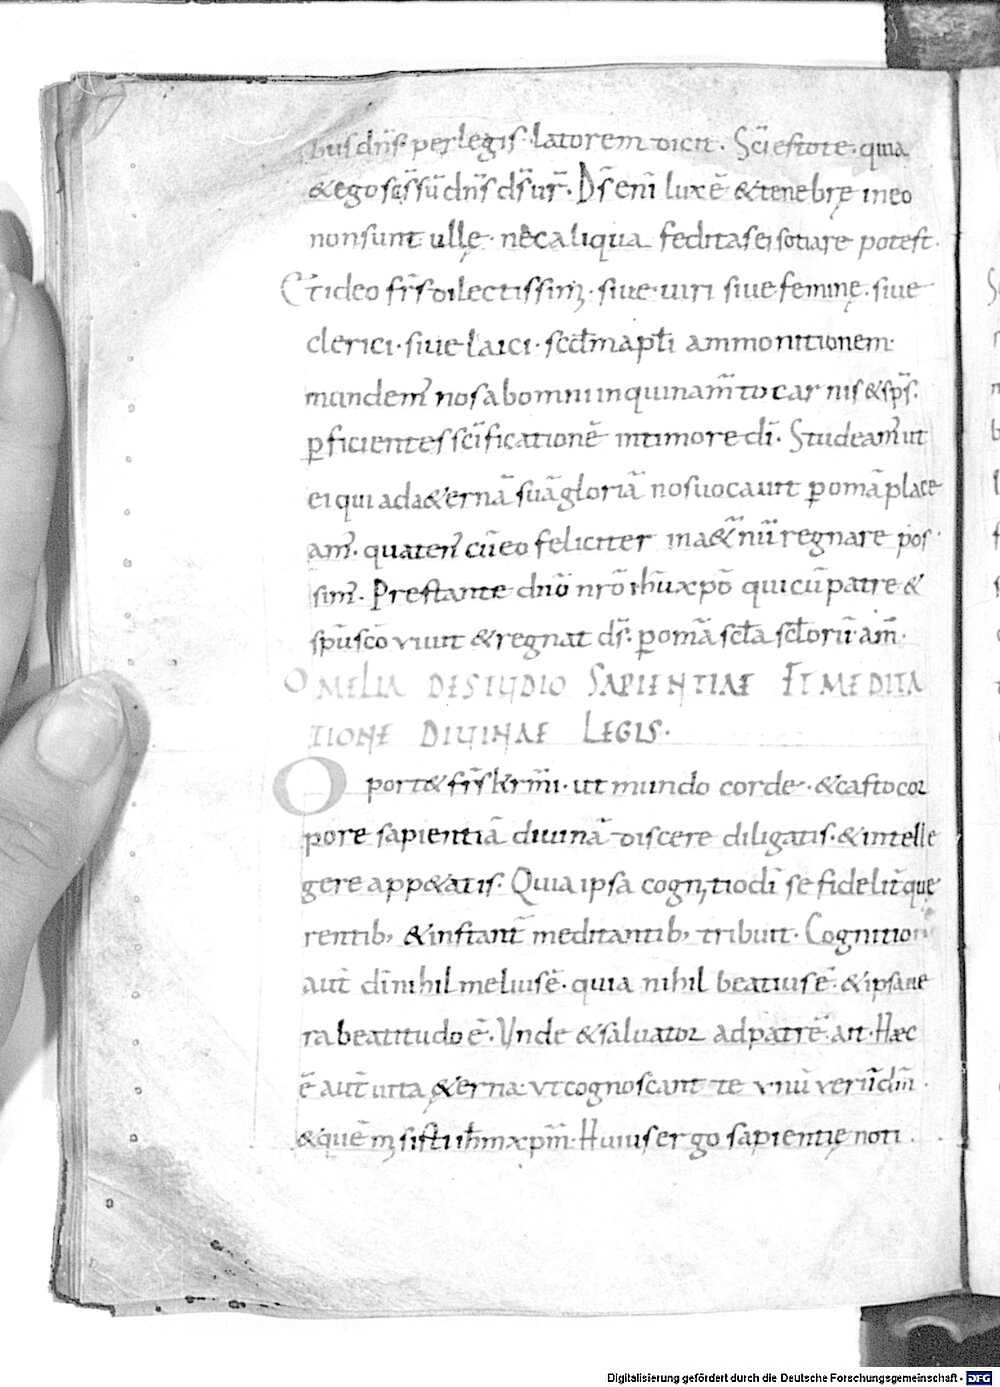 bus dn̄s per legis latorem dicit. Sc̄i estote quia
& ego sc̄s sū dn̄s ds̄ ur̄. Ds̄ enī lux ē & tenebrę in eo
non sunt ullę. nec aliqua feditas ei sotiare potest.
Et ideo fr̄s dilectissim̄. siue uiri siue feminę. siue
clerici. siue laici. scd̄m apl̄i ammonitionem
mundem̄ nos ab omni inquinam̄to carnis & sp̄s.
ꝑficientes sc̄ificationē in timore dī. Studeam̄ ut
ei qui ad a&ernā suā gloriā nos uocauit ꝑ omā place
am̄. quaten̄ cū eo feliciter in a&̄nū regnare pos
sim̄. Prestante dn̄o nr̄o ih̄u xp̄o qui cū patre &
sp̄u sc̄o viuit & regnat ds̄. ꝑ omā scl̄a scl̄orū am̄.
OMELIA DE STUDIO SAPIENTIAE ET MEDITA
TIONE DIUINAE LEGIS.
Oport& fr̄s kr̄mi. ut mundo corde. & casto cor
pore sapientiā diuinā discere diligatis. & intelle
gere app&atis. Quia ipsa cognitio dī se fidelit̄ que
rentib; & instant̄ meditantib; tribuit. Cognition
aut̄ dī nihil melius ē. quia nihil beatius ē. & ipsa ue
ra beatitudo ē. Unde & saluator ad patrē ait. Haec
ē aut̄ uita &erna. vt cognoscant te vnū verū dm̄.
& quē misisti ih̄m xp̄m. Huius ergo sapientię noti